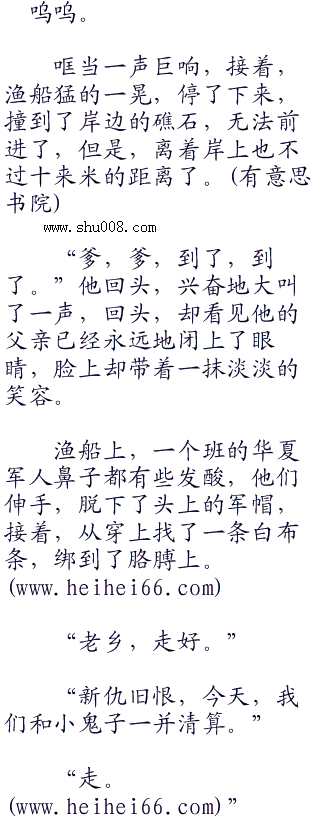 呜呜。
哐当一声巨响，接着，
渔船猛的一晃，停了下来，
撞到了岸边的礁石，无法前
进了，但是，离着岸上也不
过十来米的距离了。(有意思
书院)
www.shu008.com
“爹，爹，到了，到
了。”他回头，兴奋地大叫
了一声，回头，却看见他的
父亲已经永远地闭上了眼
睛，脸上却带着一抹淡淡的
笑容。
渔船上，一个班的华夏
军人鼻子都有些发酸，他们
伸手，脱下了头上的军帽，
接着，从穿上找了一条白布
条，绑到了胳膊上。
(www.heihei66.com)
“老乡，走好。”
“新仇旧恨，今天，我
们和小鬼子一并清算。”
“走。
(www.heihei66.com)”